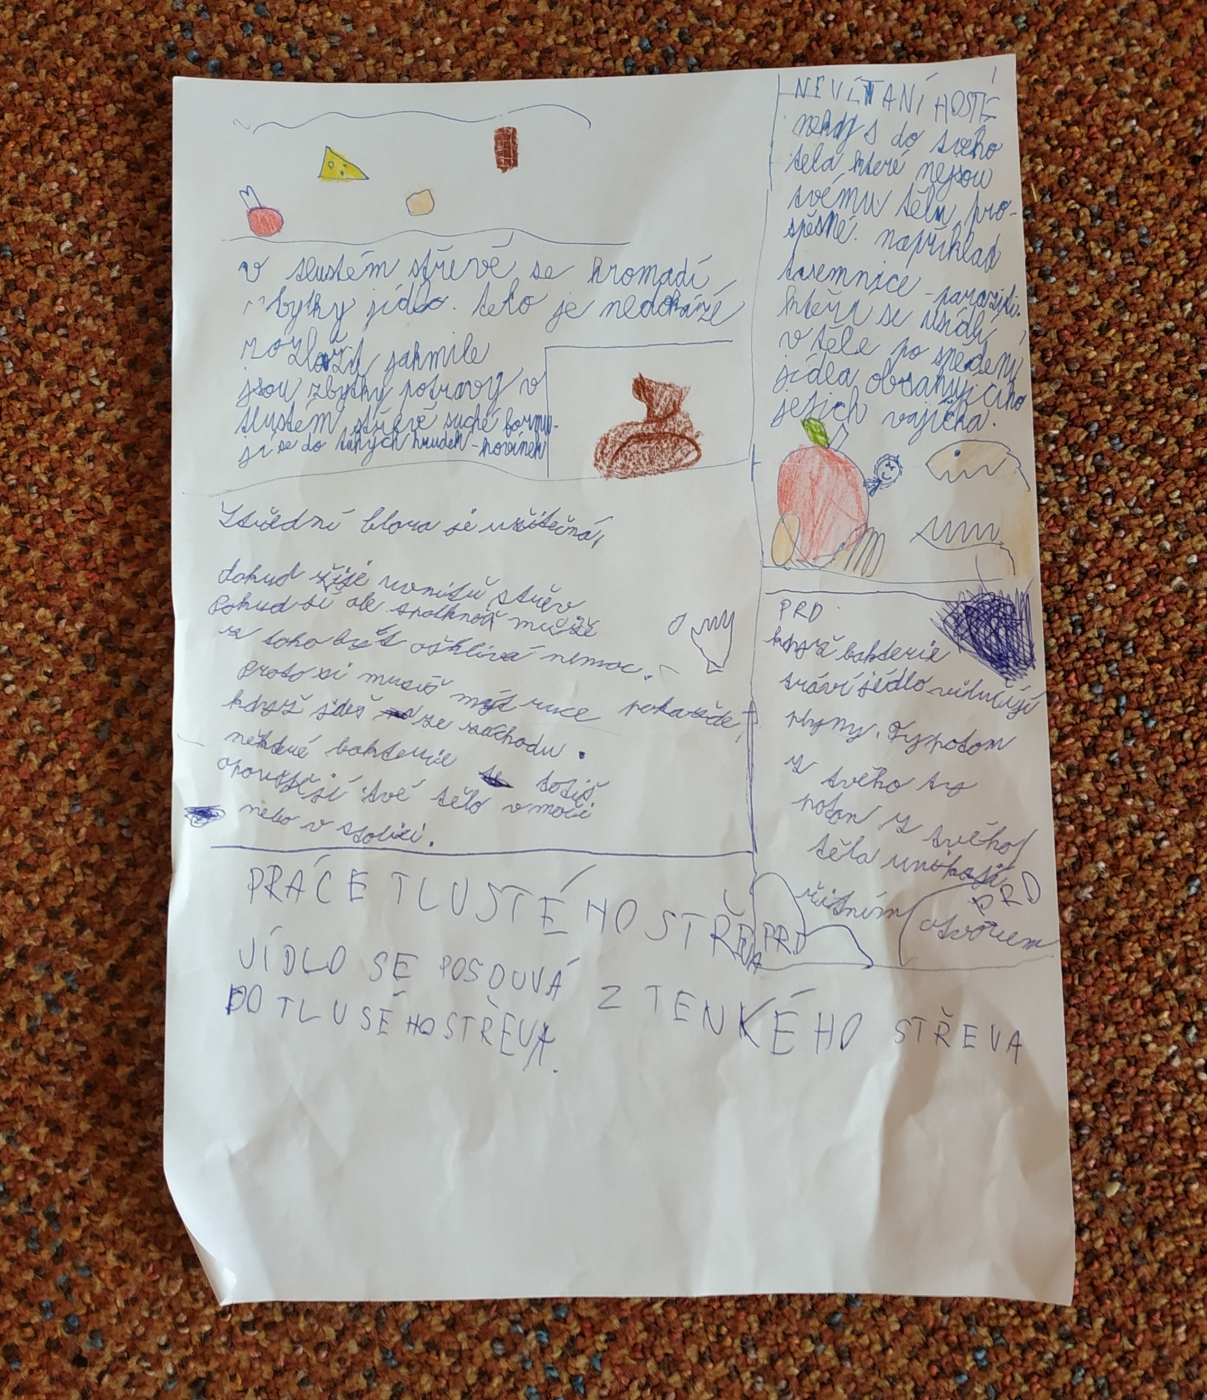 v tlustém střevě se hromadí
zbytky jídlo. teto je nedokáže
rozložit jakmile
jsou zbytky potravy v
tlustém střevě suché formu-
jí se do tuhých hrudek - hovínek
Střední blora je užitečná,
dokud žije uvnitř střev
Pokud si ale spolkneš může
z toho být ošklivá nemoc.
proto si musíš mýt ruce pokaždé,
když jdeš ze záchodu.
některé bakterie totiž
opouštějí tvé tělo v moči
nebo v stolici.
NEVÍTANÍ HOSTÉ
někdy s do tvého
těla které nejsou
svému tělu pro-
spěšné. například
tasemnice - paraziti.
kteří se usídlí
v těle po snědení
jídla obsahujícího
jejich vajíčka.
PRD
když bakterie
tráví jédlo vilučují
plyny. Ty potom
z tvého ty
potom z tvého
těla unikají
řitním otvorem
PRD
PRD
PRÁCE TLUSTÉHO STŘEVA
JÍDLO SE POSOUVÁ Z TENKÉHO STŘEVA
DO TLUSÉHO STŘEVA.